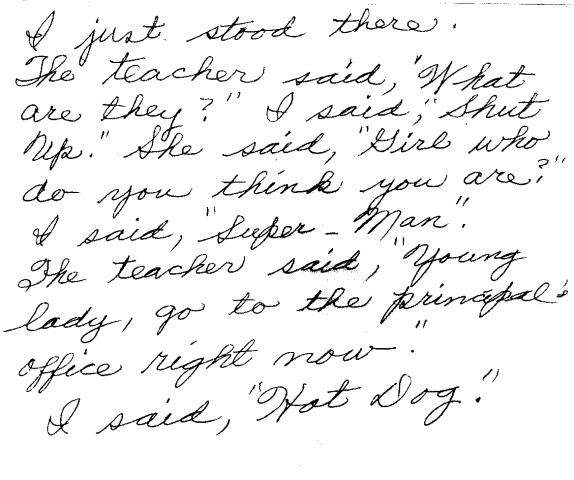 I just stood there.
The teacher said, "What
are they?" I said, "Shut
Up." She said, "Girl who
do you think you are?"
I said, "Super-Man".
The teacher said, "Young
lady, go to the principal's
office right now."
I said, "Hot Dog."